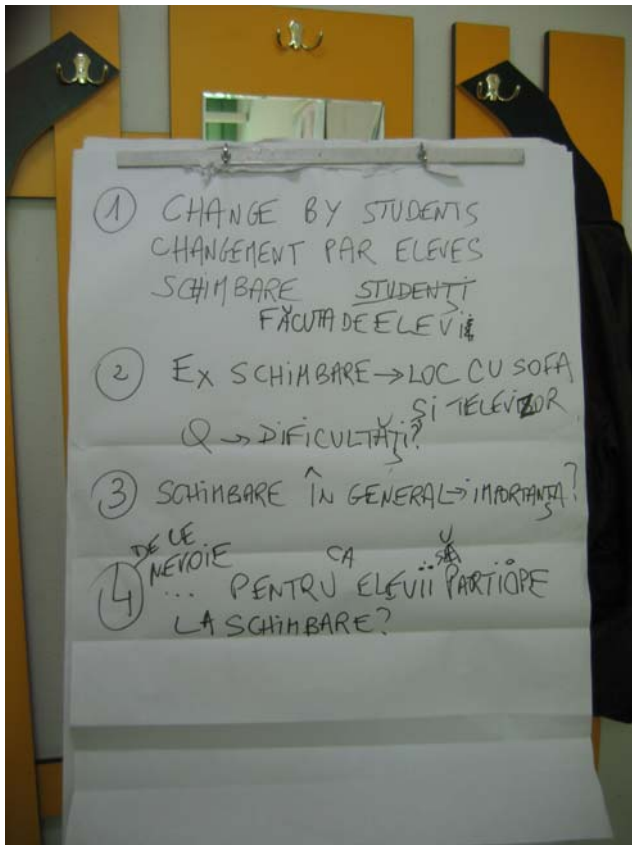 ① CHANGE BY STUDENTS
CHANGEMENT PAR ELEVES
SCHIMBARE STUDENȚI
FĂCUTA DE ELEVII
② EX SCHIMBARE → LOC CU SOFA
ȘI TELEVIZOR
Q → DIFICULTĂȚI?
③ SCHIMBARE ÎN GENERAL → IMPORTANȚA?
DE CE
NEVOIE CA SĂ
④ ... PENTRU ELEVII PARTICIPE
LA SCHIMBARE?